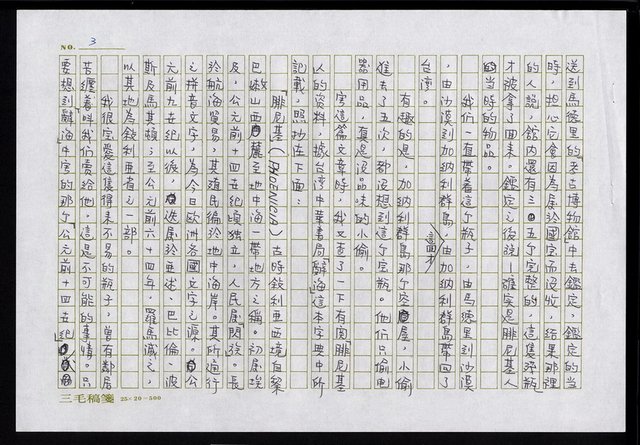 NO. 3
送到馬德里的「考古博物館」中去鑑定，鑑定的當
時，担心它會因為屬於國宝而沒收，結果那裡
的人說，館內還有三五个完整的，這隻淨瓶
才被拿了回來。鑑定之後說——確实是腓尼基人
的當時的物品。
我们一直帶着這个瓶子，由馬德里到沙漠
，由沙漠到加納利群島，由加納利群島這才帶回了
台湾。
有趣的是，加納利群島那个空屋，小偷
進去了五次，都沒想到這个宝瓶。他们只偷电
器用品，真是沒品味的小偷。
寫這篇文章時，我又查了一下有関「腓尼基
人的資料，據台湾中華書局「辭海」這本字典中所
記載，照抄在下面：
「腓尼基（PHOENICIA）古時敘利亜西境自黎
巴嫩山西麓至地中海一帶地方之稱。初屬埃
及，公元前十四世紀頃独立，人民屢関後。長
於航海貿易，其殖民徧於地中海岸。其所通行
之拼音文字，為今日欧洲各國文字之源。公
元前九世紀以後，迭屬於亜述、巴比倫、波
斯及馬其頓；至公元前六十四年，羅馬滅之，
以其地為敘利亜省之一部。
我很宝愛這隻得來不易的瓶子，曾有鄰居
苦纏着叫我们賣給他，這是不可能的事情。只
要想到「辭海」中寫的那个「公元前十四世紀」
三毛稿箋 25×20=500